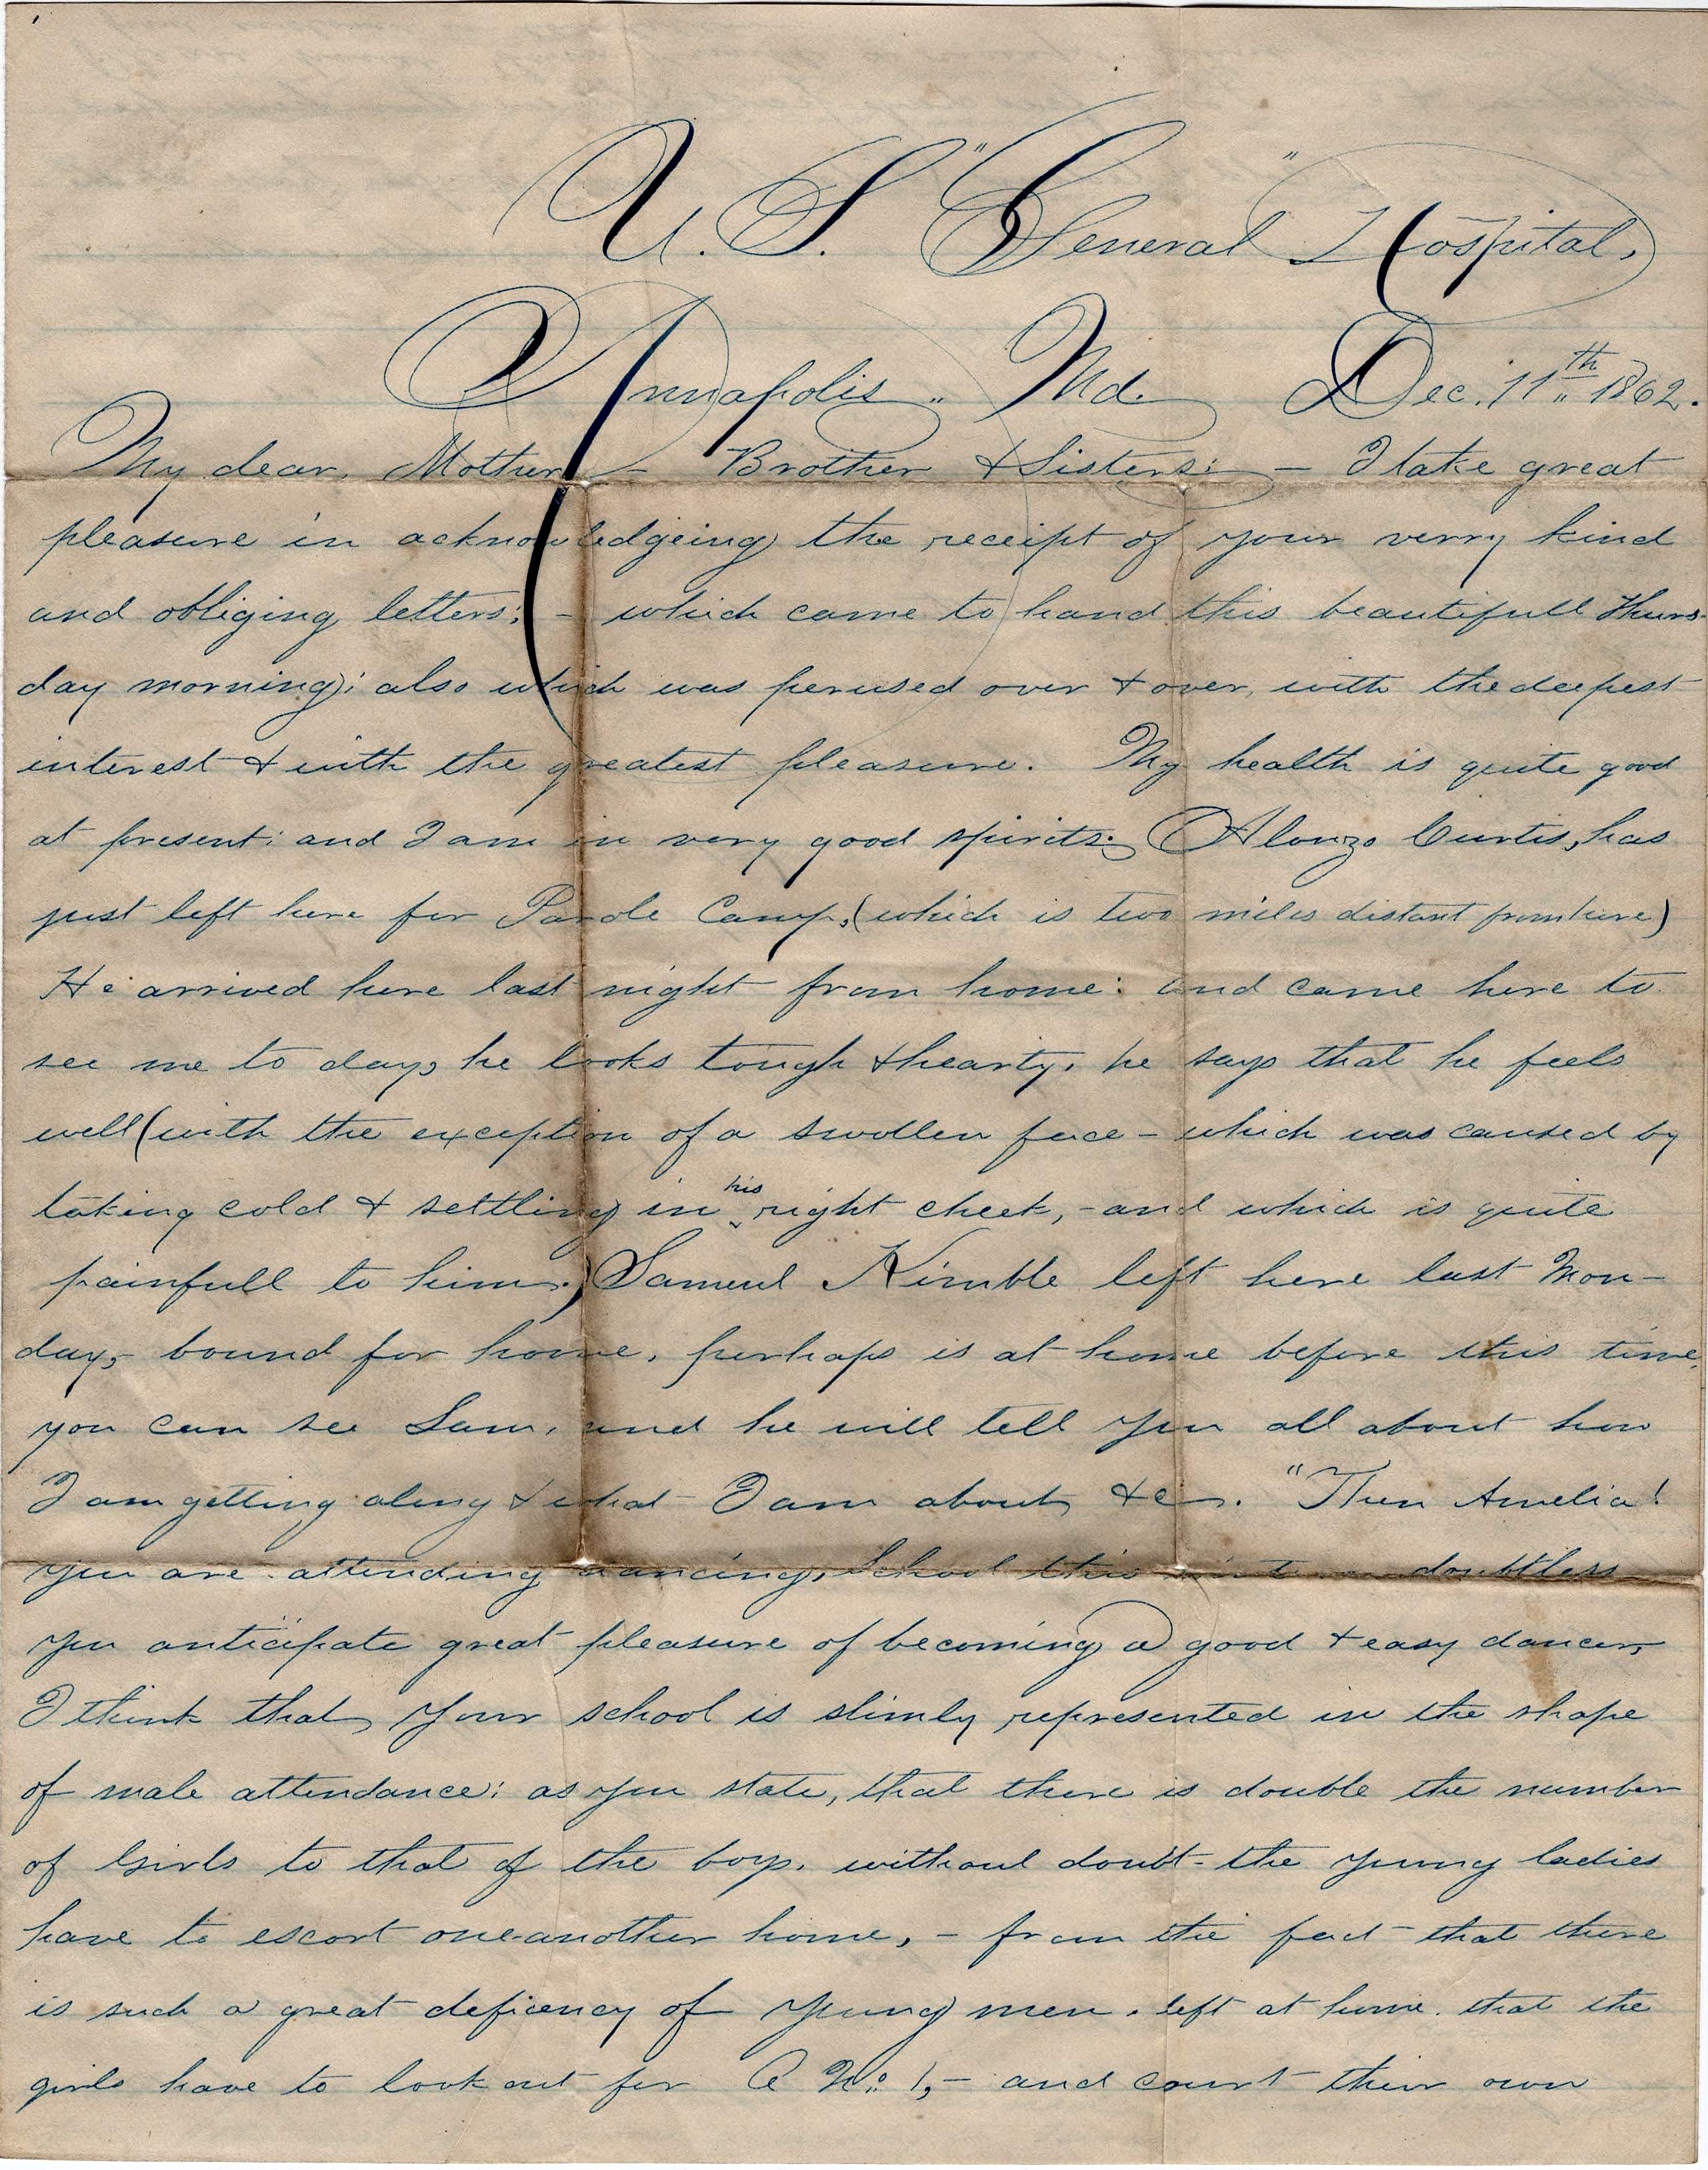 U. S. "General" Hospital,
Annapolis,, Md. Dec. 11th,, 1862.
My dear, Mother - Brother & Sisters: - I take great
pleasure in acknowledgeing the receipt of your verry kind
and obliging letters; - which came to hand this beautifull Thurs-
day morning; also which was perused over & over, with the deepest
interest & with the greatest pleasure. My health is quite good
at present: and I am in very good spirits. Alonzo Curtis, has
just left here for Parole Camp, (which is two miles distant from here)
He arrived here last night from home: and came here to
see me to day, he looks tough & hearty, he says that he feels
well (with the exception of a swollen face - which was caused by
taking cold & settling in his right cheek, - and which is quite
painfull to him.) Sameul Kimble left here last Mon-
day, - bound for home, perhaps is at home before this time,
you can see Sam, and he will tell you all about how
I am getting along & what I am about, &c. "Then Amelia!
you are attending dancing, School this winter doubtless
you anticipate great pleasure of becoming a good & easy dancer,
I think that, your school is slimly represented in the shape
of male attendance: as you state, that there is double the number
of Girls to that of the boys. without doubt - the young ladies
have to escort one another home, - from the fact - that there
is such a great deficency of young men. left at home. that the
girls have to look out for A No. 1, - and court their own